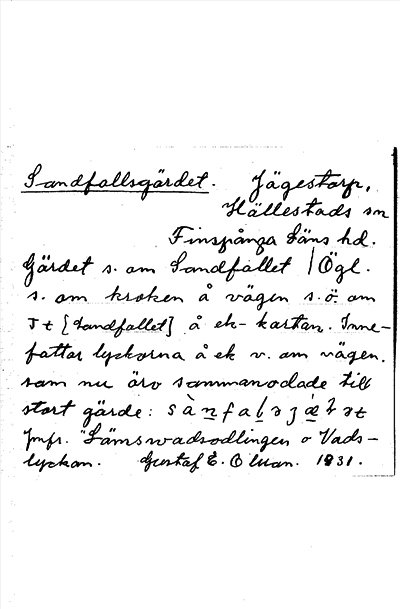 Sandfallsgärdet. Jägestorp,
Hällestads sn
Finspånga Läns hd.
Gärdet s. om Sandfallet / Ögl.
s. om kroken å vägen s.ö. om
Jt [Sandfallet] å ek-kartan. Inne-
fattar lyckorna å ek v. om vägen,
som nu äro sammanodlade till
stort gärde:
Jmfr. "Lämsvadsodlingen o Vads-
lyckan. Gustaf E. Olsson. 1931.